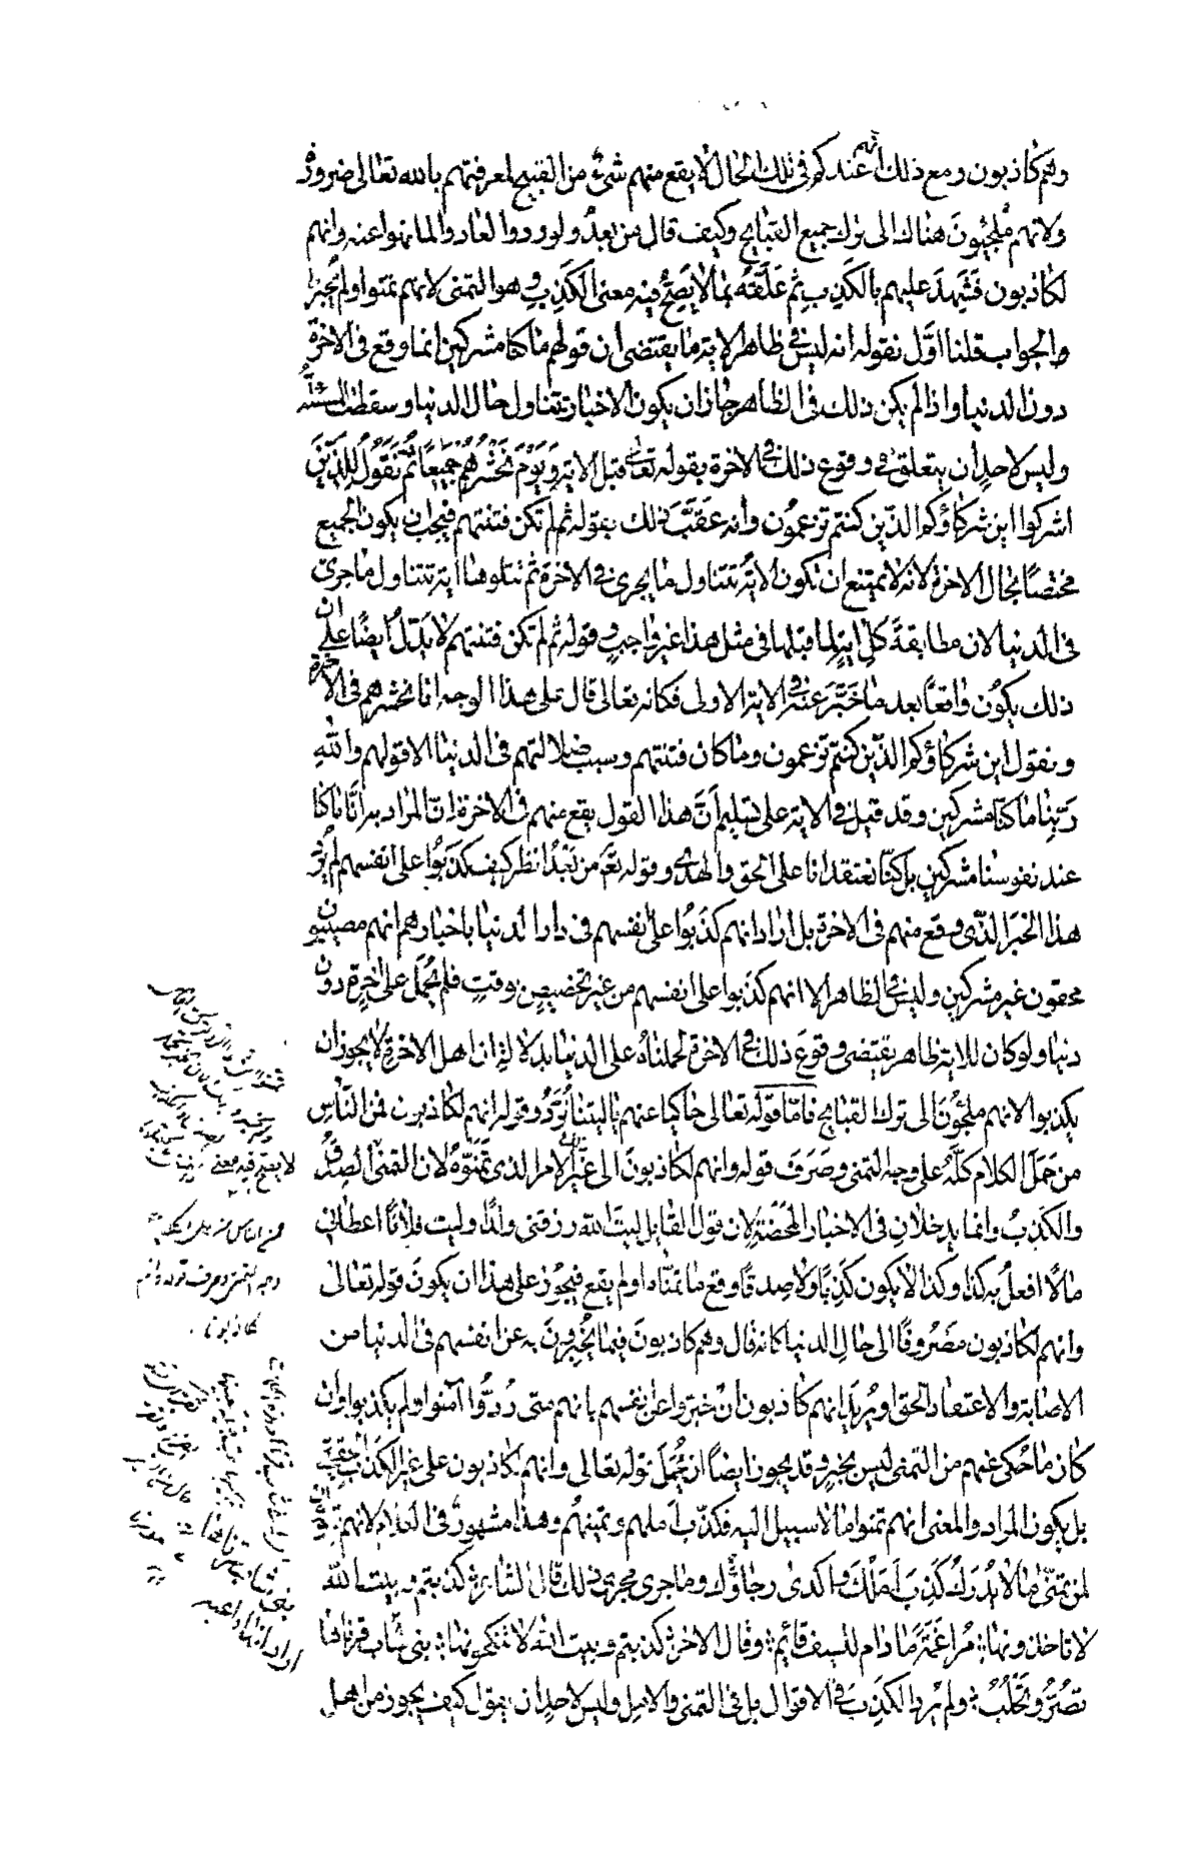 وهم كاذبون ومع ذلك انهم عندكم في تلك الحال لا يقع منهم شئ من القبيح لمعرفتهم بالله تعالى ضرورة
ولانهم ملجئون هناك الى ترك جميع القبايح وكيف قال من بعد ولو ردوا لعادوا لما نهوا عنه وانهم
لكاذبون فشهد عليهم بالكذب ثم علقه بما لا يصح فيه معنى الكذب وهو التمنى لانهم تمنوا ولم يخبروا
والجواب قلنا اول نقوله انه ليس في ظاهر الاية ما يقتضى ان قولهم ما كنا مشركين انما وقع فى الاخرة
دون الدنيا واذا لم يكن ذلك في الظاهر جاز ان يكون الاخبار تتناول حال الدنيا وسقطت المسئلة
وليس لاحد ان يتعلق في وقوع ذلك في الاخرة بقوله تعالى قبل الاية وَيَوْمَ نَحْشُرُهُمْ جَمِيعًا ثُمَّ نَقُولُ لِلَّذِينَ
اشركوا اين شركاؤكم الذين كنتم تزعمون وانه عقب ذلك بقوله ثم لم تكن فتنتهم فيجب ان يكون الجميع
مختصا بحال الاخرة لانه لا يمتنع ان تكون الاية تتناول ما يجرى في الاخرة ثم تتلوها اية تتناول ما جرى
فى الدنيا لان مطابقة كل اية لما قبلها فى مثل هذا غير واجب وقوله ثم لم تكن فتنتهم لا يدل ايضا على ان
ذلك يكون واقعا بعد ما خبر عنه في الاية الاولى فكانه تعالى قال على هذا الوجه انا نحشرهم فى الاخرة
ونقول اين شركاؤكم الذين كنتم تزعمون وما كان فتنتهم وسبب ضلالتهم فى الدنيا الا قولهم والله
ربنا ما كنا مشركين وقد قيل في الاية على تسليم ان هذا القول يقع منهم في الاخرة ان المراد به انا ما كنا
عند نفوسنا مشركين بل كنا نعتقد انا على الحق والهدى وقوله تعالى من بعد انظر كيف كذبوا على انفسهم لم يرد
هذا الخبر الذي وقع منهم فى الاخرة بل اراد انهم كذبوا على انفسهم فى دار الدنيا باخبارهم انهم مصيبون
محقون غير مشركين وليس في الظاهر الا انهم كذبوا على انفسهم من غير تخصيص بوقت فلم يحمل على اخرة دون
دنيا ولو كان للاية ظاهر يقتضى وقوع ذلك في الاخرة لحملناه على الدنيا بدلالة ان اهل الاخرة لا يجوز ان
يكذبوا لانهم ملجئون الى ترك القبايح فاما قوله تعالى حاكيا عنهم يا ليتنا نرد وقوله انهم لكاذبون فمن الناس
من حمل الكلام كله على وجه التمنى وصرف قوله وانهم لكاذبون الى غير الامر الذى تمنوه لان التمنى الصدق
والكذب وانما يدخلان فى الاخبار المحضة لان قول القايل ليت الله رزقنى ولدا وليت فلانا اعطانى
مالا افعل به كذا وكذا لا يكون كذبا ولا صدقا وقع ما تمناه او لم يقع فيجوز على هذا ان يكون قوله تعالى
وانهم لكاذبون مصروفا الى حال الدنيا كانه قال وهم كاذبون فيما يخبرون به عن انفسهم فى الدنيا من
الاصابة والاعتقاد الحق او يريد انهم كاذبون ان خبروا عن انفسهم بانهم متى ردوا آمنوا ولم يكذبوا وان
كان ما حكى عنهم من التمنى ليس بخبر وقد يجوز ايضا ان يحمل قوله تعالى وانهم لكاذبون على غير الكذب الحقيقى
بل يكون المراد والمعنى انهم تمنوا ما لا سبيل اليه فكذب املهم وتمنيهم وهذا مشهور فى الكلام لانهم يقولون
لمن تمنى ما لا يدرك كذب املك واكدى رجاؤك وما جرى مجرى ذلك قال الشاعر كذبتم وبيت الله
لا تاخذونها مراغمة ما دام للسيف قائم وقال الاخر كذبتم وبيت الله لا تنكحونها بنى شاب قرناها
تصر وتحلب ولم يرد الكذب في الاقوال بل فى التمنى والامل وليس لاحد ان يقول كيف يجوز من اهل
لا يصح فيه معنى
فمن الناس من
وجه التمنى وصرف قوله وانهم
لكاذبون
بنى شاب قرناها